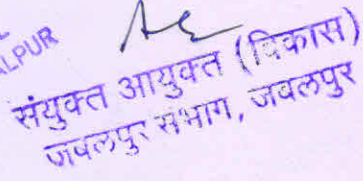 ALPUR
संयुक्त आयुक्त (विकास)
जबलपुर संभाग, जबलपुर